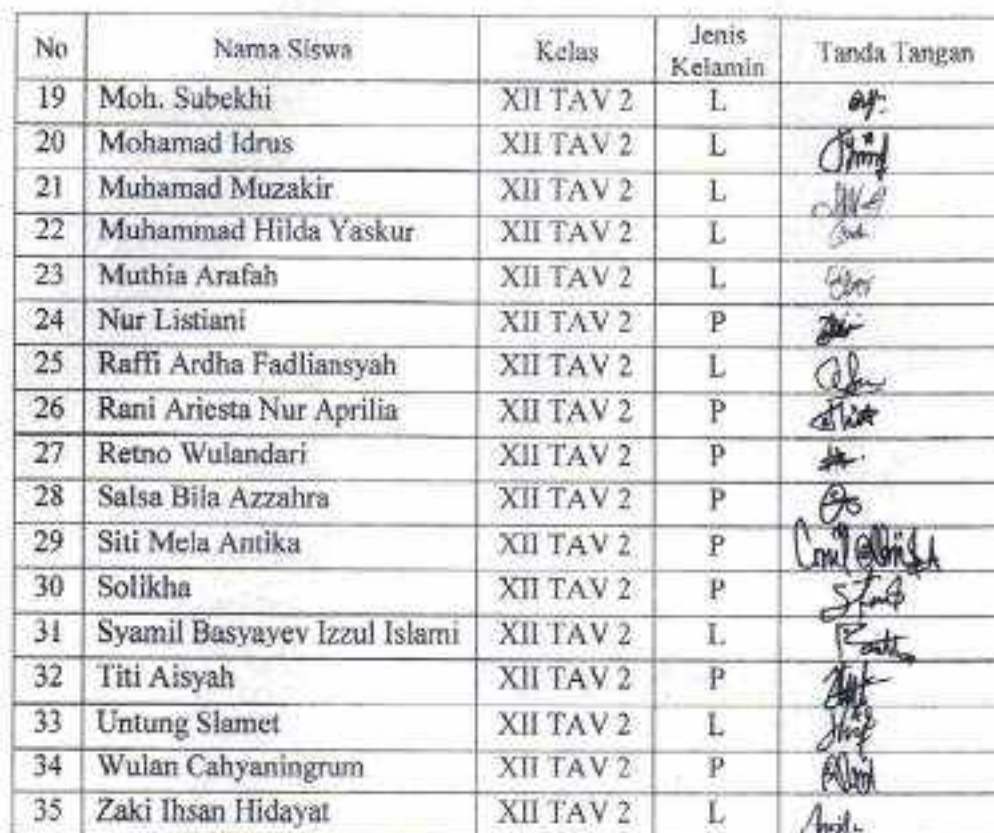 No Nama Siswa Kelas Jenis Kelamin Tanda Tangan
19 Moh. Subekhi XII TAV 2 L
20 Mohamad Idrus XII TAV 2 L
21 Muhamad Muzakir XII TAV 2 L
22 Muhammad Hilda Yaskur XII TAV 2 L
23 Muthia Arafah XII TAV 2 L
24 Nur Listiani XII TAV 2 P
25 Raffi Ardha Fadliansyah XII TAV 2 L
26 Rani Ariesta Nur Aprilia XII TAV 2 P
27 Retno Wulandari XII TAV 2 P
28 Salsa Bila Azzahra XII TAV 2 P
29 Siti Mela Antika XII TAV 2 P
30 Solikha XII TAV 2 P
31 Syamil Basyayev Izzul Islami XII TAV 2 L
32 Titi Aisyah XII TAV 2 P
33 Untung Slamet XII TAV 2 L
34 Wulan Cahyaningrum XII TAV 2 P
35 Zaki Ihsan Hidayat XII TAV 2 L